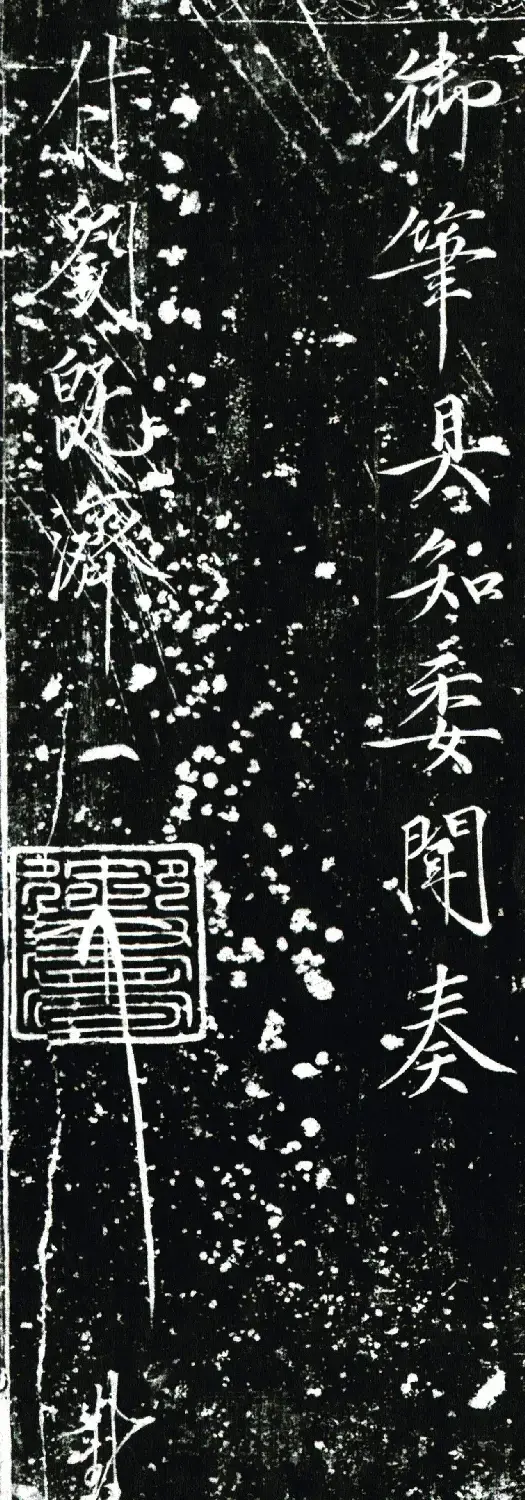 御筆具知委聞奏
付劉既濟
一